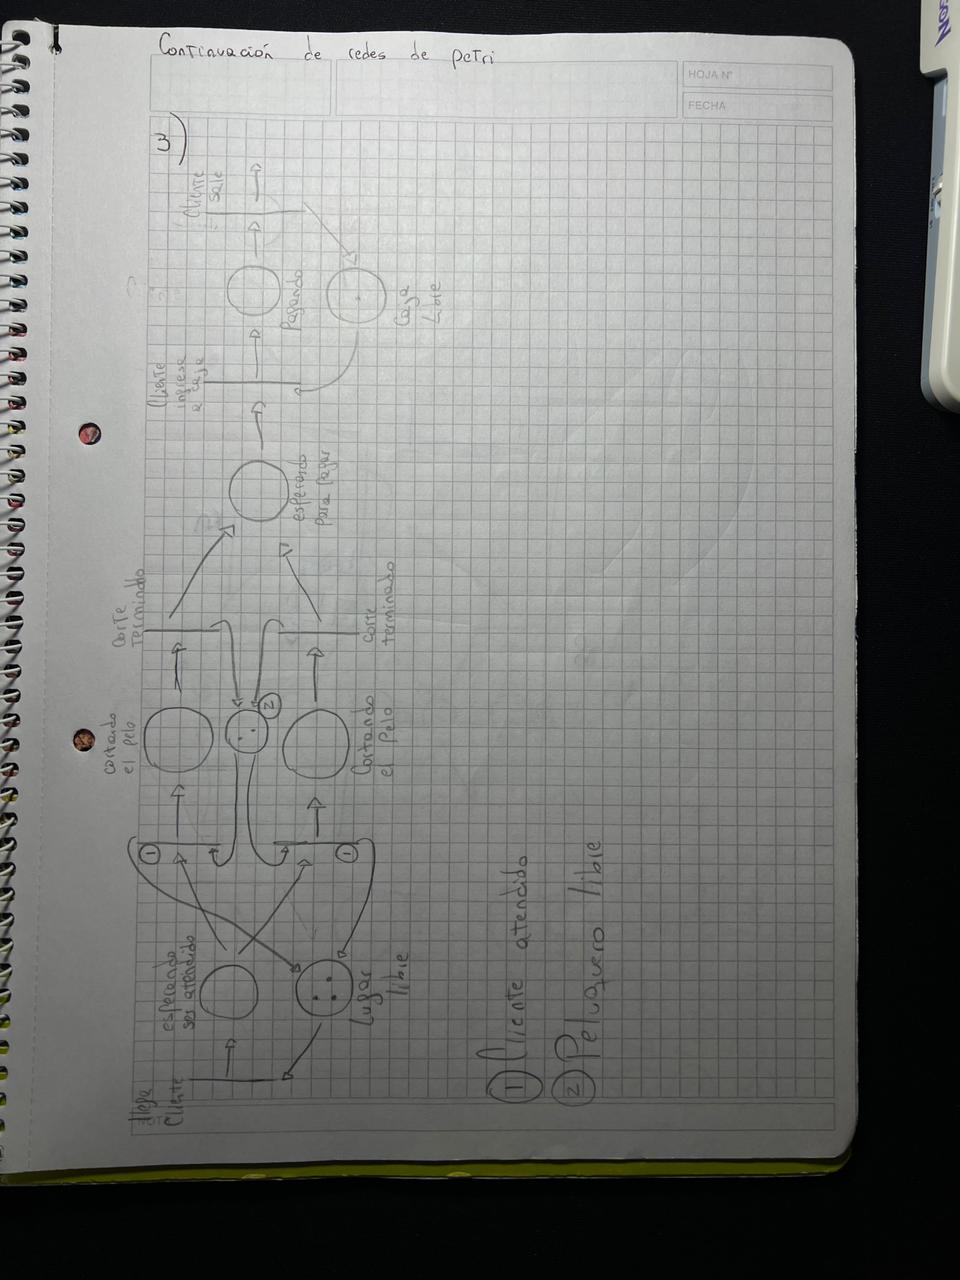 Continuación de redes de petri
HOJA N°
FECHA
3)
llega
Cliente
esperando
ser atendido
Lugar
libre
1
1
cortando
el pelo
2
Cortando
el Pelo
corte
Terminado
corte
terminado
esperando
para pagar
Cliente
ingresa
a caja
Pagando
Caja
Libre
Cliente
sale
1 Cliente atendido
2 Peluquero libre